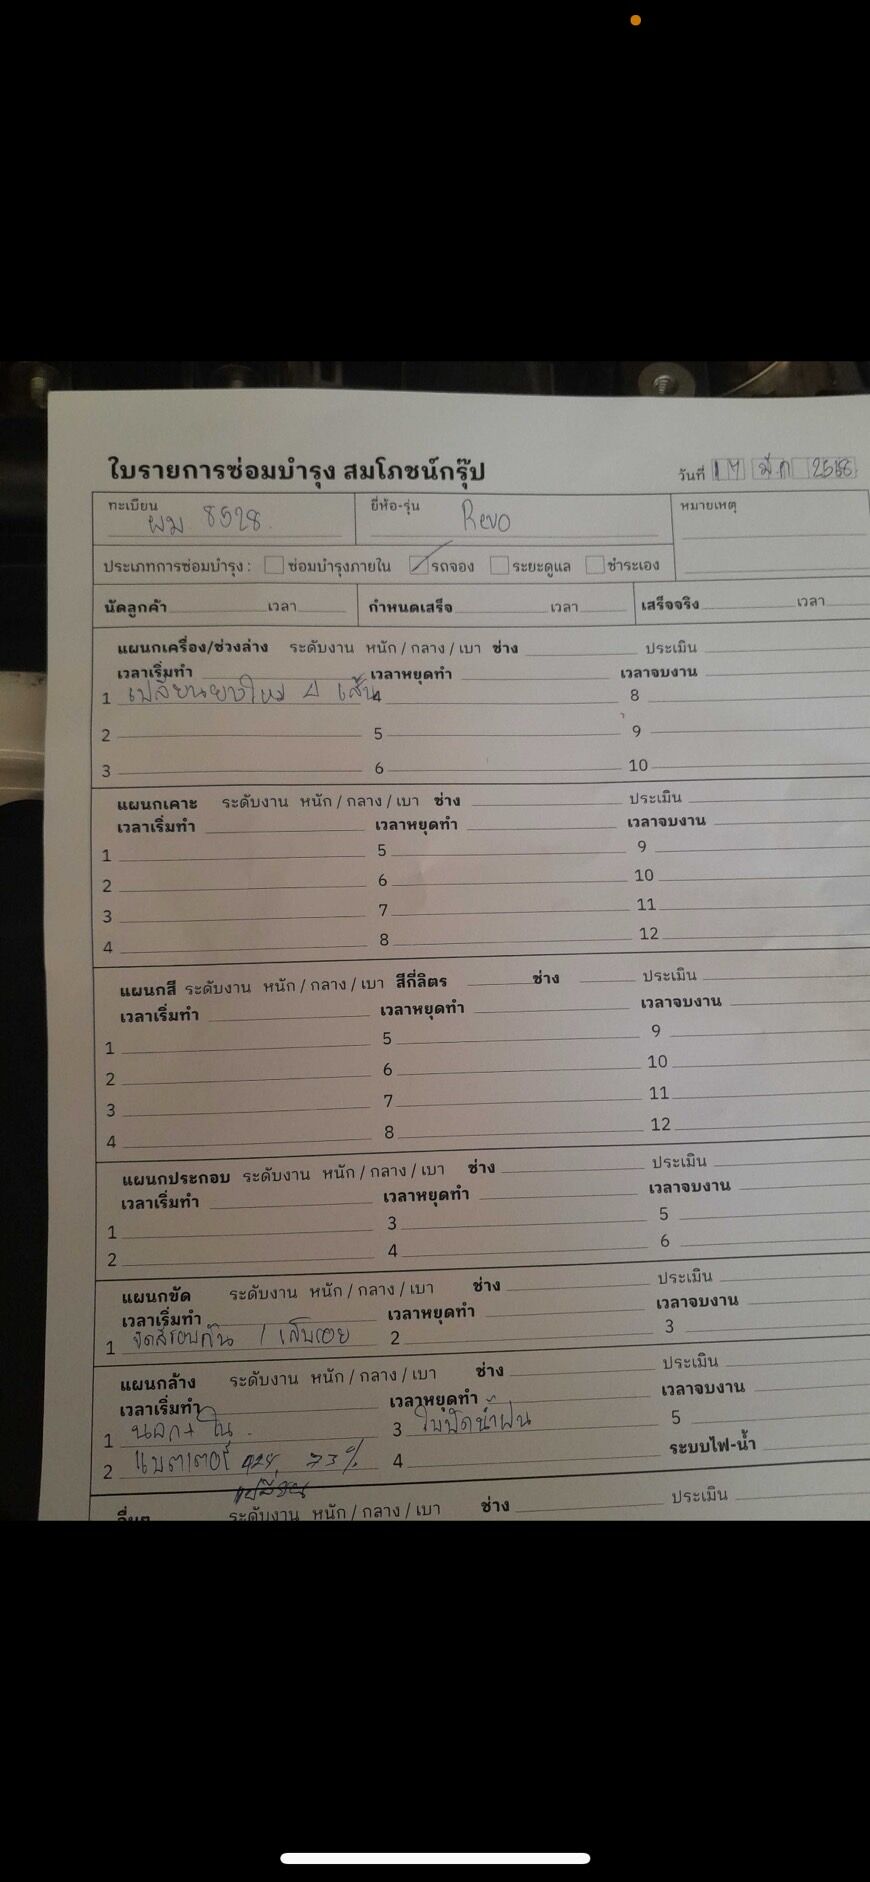 ใบรายการซ่อมบำรุง สมโภชน์กรุ๊ป
วันที่ 17 มีค 2568
ทะเบียน ผม 8528 ยี่ห้อ-รุ่น Revo หมายเหตุ
ประเภทการซ่อมบำรุง : ซ่อมบำรุงภายใน รถจอง ระยะดูแล ชำระเอง
นัดลูกค้า เวลา กำหนดเสร็จ เวลา เสร็จจริง เวลา
แผนกเครื่อง/ช่วงล่าง ระดับงาน หนัก / กลาง / เบา ช่าง ประเมิน
เวลาเริ่มทำ เวลาหยุดทำ เวลาจบงาน
1 เปลี่ยนยางใหม่ 4 เส้น 4 8
2 5 9
3 6 10
แผนกเคาะ ระดับงาน หนัก / กลาง / เบา ช่าง ประเมิน
เวลาเริ่มทำ เวลาหยุดทำ เวลาจบงาน
1 5 9
2 6 10
3 7 11
4 8 12
แผนกสี ระดับงาน หนัก / กลาง / เบา สีกี่ลิตร ช่าง ประเมิน
เวลาเริ่มทำ เวลาหยุดทำ เวลาจบงาน
1 5 9
2 6 10
3 7 11
4 8 12
แผนกประกอบ ระดับงาน หนัก / กลาง / เบา ช่าง ประเมิน
เวลาเริ่มทำ เวลาหยุดทำ เวลาจบงาน
1 3 5
2 4 6
แผนกขัด ระดับงาน หนัก / กลาง / เบา ช่าง ประเมิน
เวลาเริ่มทำ เวลาหยุดทำ เวลาจบงาน
1 ขัดสีรอบคัน / เก็บรอย 2 3
แผนกล้าง ระดับงาน หนัก / กลาง / เบา ช่าง ประเมิน
เวลาเริ่มทำ เวลาหยุดทำ เวลาจบงาน
1 นอก+ใน 3 ใบปัดน้ำฝน 5
2 แบตเตอรี่ 73% 4 ระบบไฟ-น้ำ
เปลี่ยน
อื่นๆ ระดับงาน หนัก / กลาง / เบา ช่าง ประเมิน